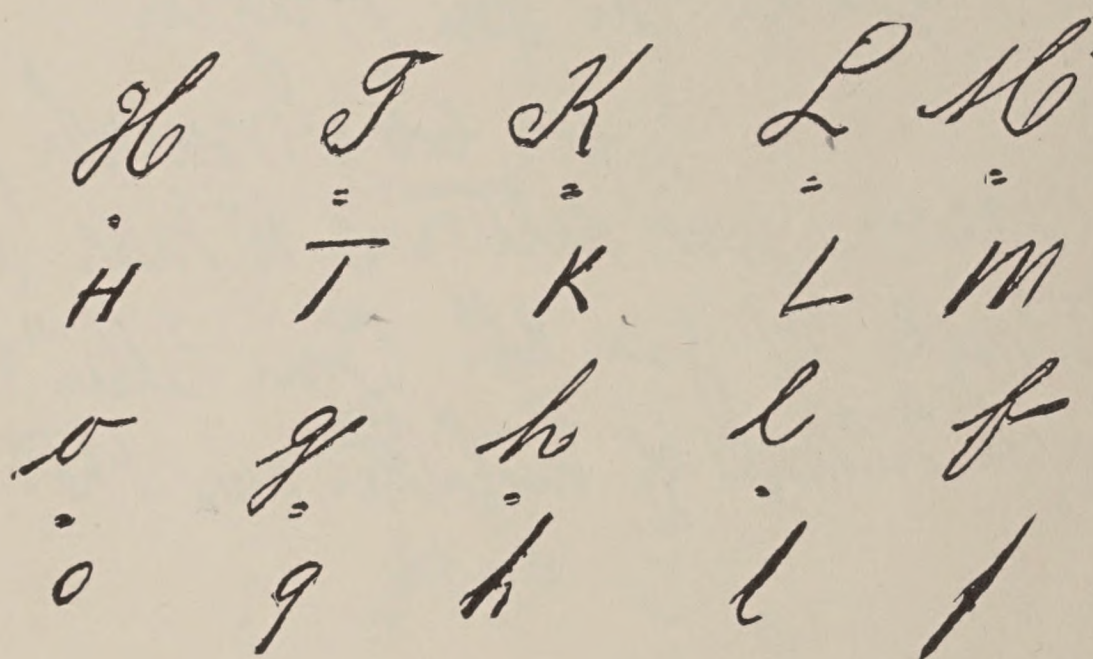 H T K L M
= = = = =
H T K L M
o g h l f
= = = = =
o g h l f